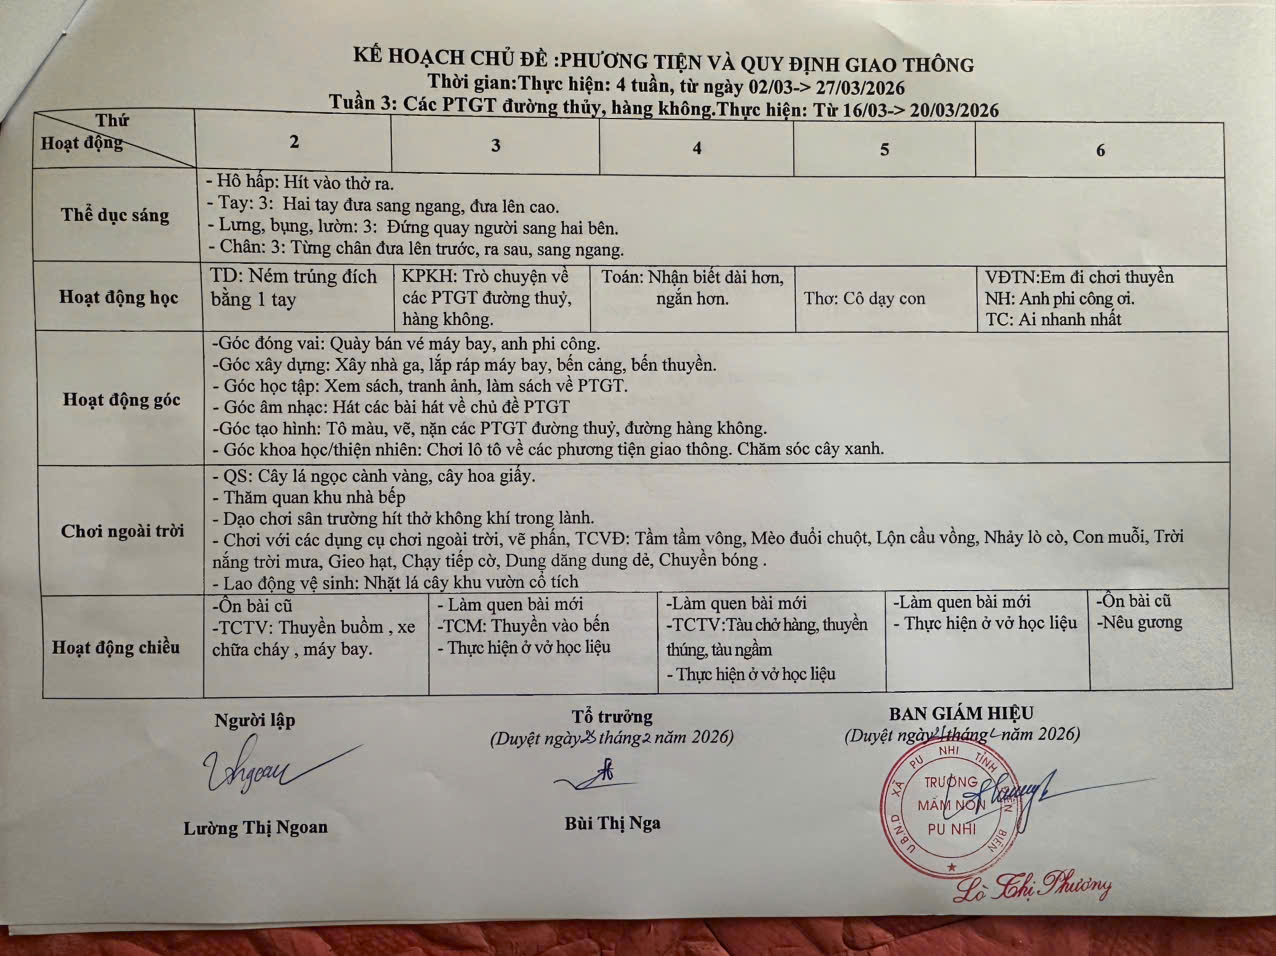 KẾ HOẠCH CHỦ ĐỀ :PHƯƠNG TIỆN VÀ QUY ĐỊNH GIAO THÔNG
Thời gian:Thực hiện: 4 tuần, từ ngày 02/03-> 27/03/2026
Tuần 3: Các PTGT đường thủy, hàng không.Thực hiện: Từ 16/03-> 20/03/2026
Thứ
Hoạt động
2
3
4
5
6
Thể dục sáng
- Hô hấp: Hít vào thở ra.
- Tay: 3: Hai tay đưa sang ngang, đưa lên cao.
- Lưng, bụng, lườn: 3: Đứng quay người sang hai bên.
- Chân: 3: Từng chân đưa lên trước, ra sau, sang ngang.
Hoạt động học
TD: Ném trúng đích
bằng 1 tay
KPKH: Trò chuyện về
các PTGT đường thuỷ,
hàng không.
Toán: Nhận biết dài hơn,
ngắn hơn.
Thơ: Cô dạy con
VĐTN:Em đi chơi thuyền
NH: Anh phi công ơi.
TC: Ai nhanh nhất
Hoạt động góc
-Góc đóng vai: Quày bán vé máy bay, anh phi công.
-Góc xây dựng: Xây nhà ga, lắp ráp máy bay, bến cảng, bến thuyền.
- Góc học tập: Xem sách, tranh ảnh, làm sách về PTGT.
- Góc âm nhạc: Hát các bài hát về chủ đề PTGT
-Góc tạo hình: Tô màu, vẽ, nặn các PTGT đường thuỷ, đường hàng không.
- Góc khoa học/thiện nhiên: Chơi lô tô về các phương tiện giao thông. Chăm sóc cây xanh.
Chơi ngoài trời
- QS: Cây lá ngọc cành vàng, cây hoa giấy.
- Thăm quan khu nhà bếp
- Dạo chơi sân trường hít thở không khí trong lành.
- Chơi với các dụng cụ chơi ngoài trời, vẽ phấn, TCVĐ: Tầm tầm vông, Mèo đuổi chuột, Lộn cầu vồng, Nhảy lò cò, Con muỗi, Trời
nắng trời mưa, Gieo hạt, Chạy tiếp cờ, Dung dăng dung dẻ, Chuyền bóng .
- Lao động vệ sinh: Nhặt lá cây khu vườn cổ tích
Hoạt động chiều
-Ôn bài cũ
-TCTV: Thuyền buồm , xe
chữa cháy , máy bay.
- Làm quen bài mới
-TCM: Thuyền vào bến
- Thực hiện ở vở học liệu
-Làm quen bài mới
-TCTV:Tàu chở hàng, thuyền
thúng, tàu ngầm
- Thực hiện ở vở học liệu
-Làm quen bài mới
- Thực hiện ở vở học liệu
-Ôn bài cũ
-Nêu gương
Người lập
Tổ trưởng
BAN GIÁM HIỆU
(Duyệt ngày tháng 2 năm 2026)
(Duyệt ngày tháng năm 2026)
U.B.N.D XÃ PU NHI TỈNH ĐIỆN BIÊN
TRƯỜNG
MẦM NON
PU NHI
Lường Thị Ngoan
Bùi Thị Nga
Lò Thị Phương